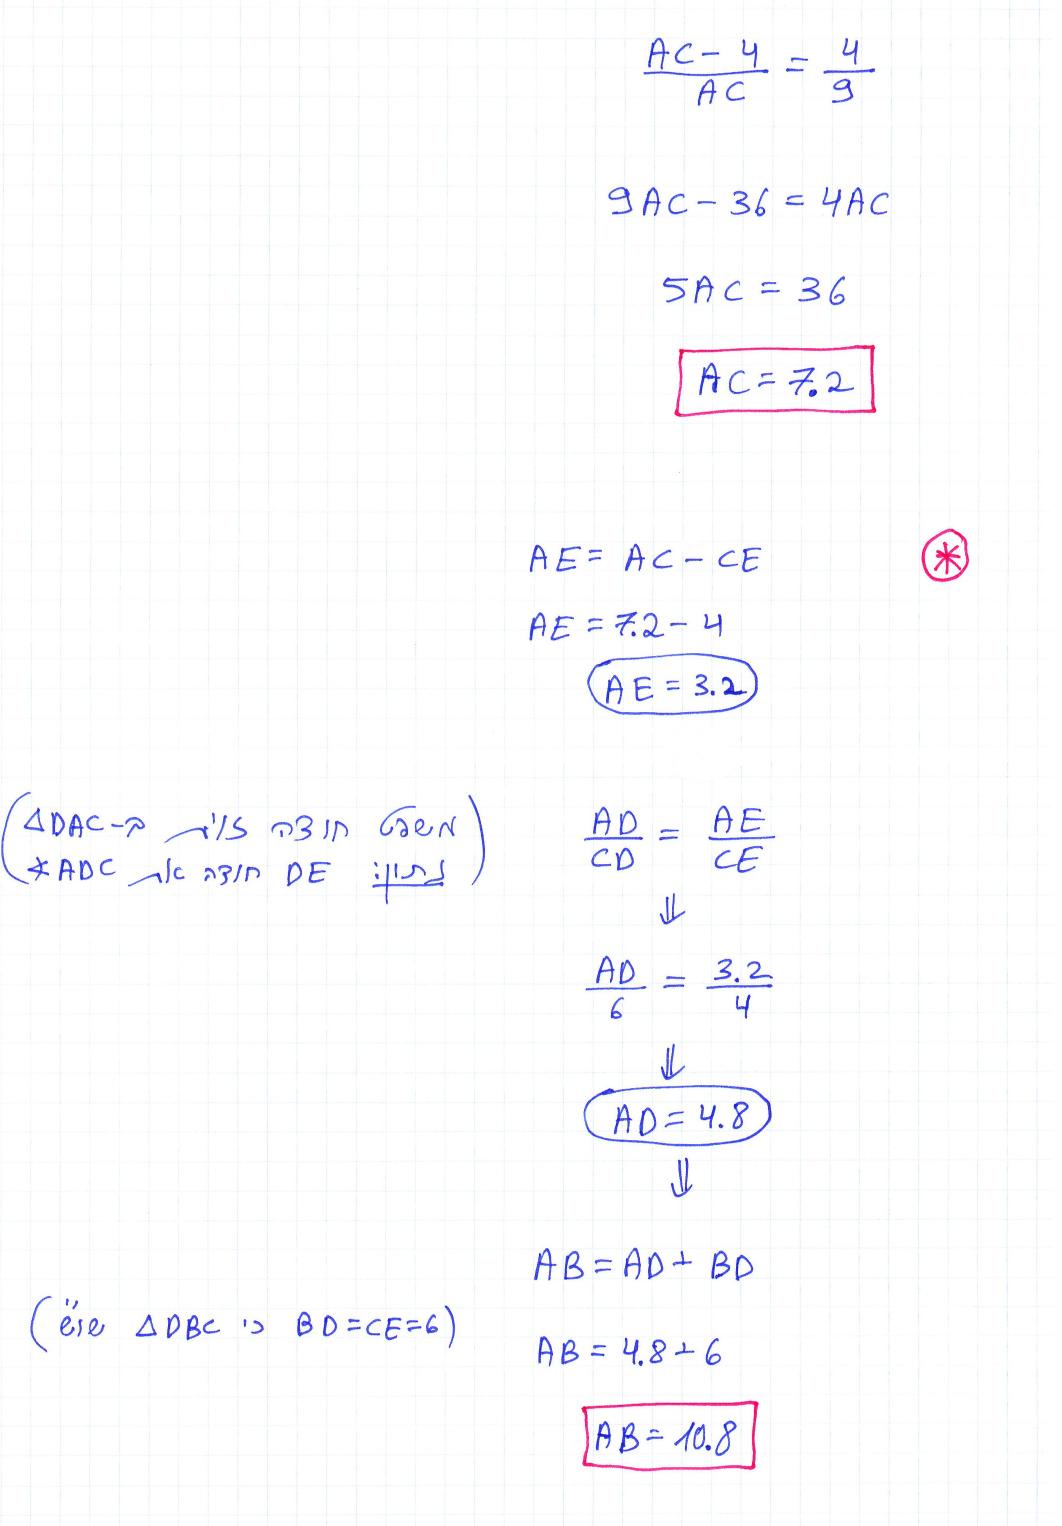 AC - 4 / AC = 4 / 9
9AC - 36 = 4AC
5AC = 36
AC = 7.2
AE = AC - CE
AE = 7.2 - 4
AE = 3.2
AD / CD = AE / CE
(משפט חוצה זוית ב-ΔDAC
נתון: DE חוצה את ∢ADC)
⇓
AD / 6 = 3.2 / 4
⇓
AD = 4.8
⇓
AB = AD + BD
(BD=CE=6 כי ΔDBC שו"ש)
AB = 4.8 + 6
AB = 10.8